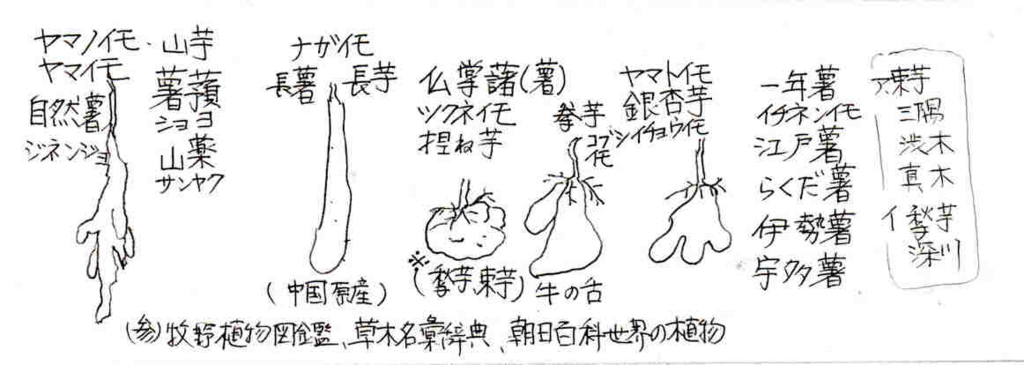 ヤマノイモ・山芋
ヤマイモ
自然薯
ジネンジョ
薯蕷
ショヨ
山薬
サンヤク
ナガイモ
長薯 長芋
(中国原産)
仏掌藷(薯)
ツクネイモ
捏ね芋
拳芋
コブシイモ
牛の舌
ヤマトイモ
銀杏芋
イチョウイモ
一年薯
イチネンイモ
江戸薯
らくだ薯
伊勢薯
宇多薯
三陽
渋木
真木
深川
(参)牧野植物図鑑、草木名彙辞典、朝日百科世界の植物